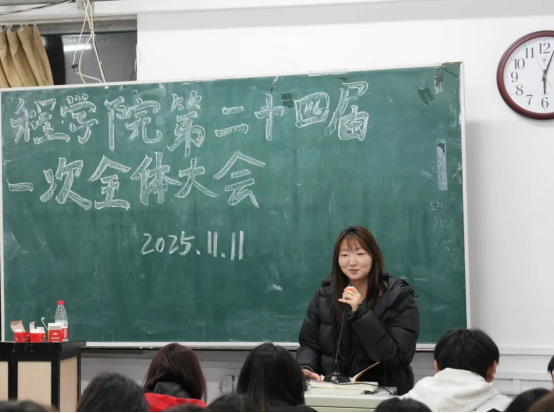 程学院第二十四届
一次全体大会
2025.11.11
12
11
10
9
8
7
6